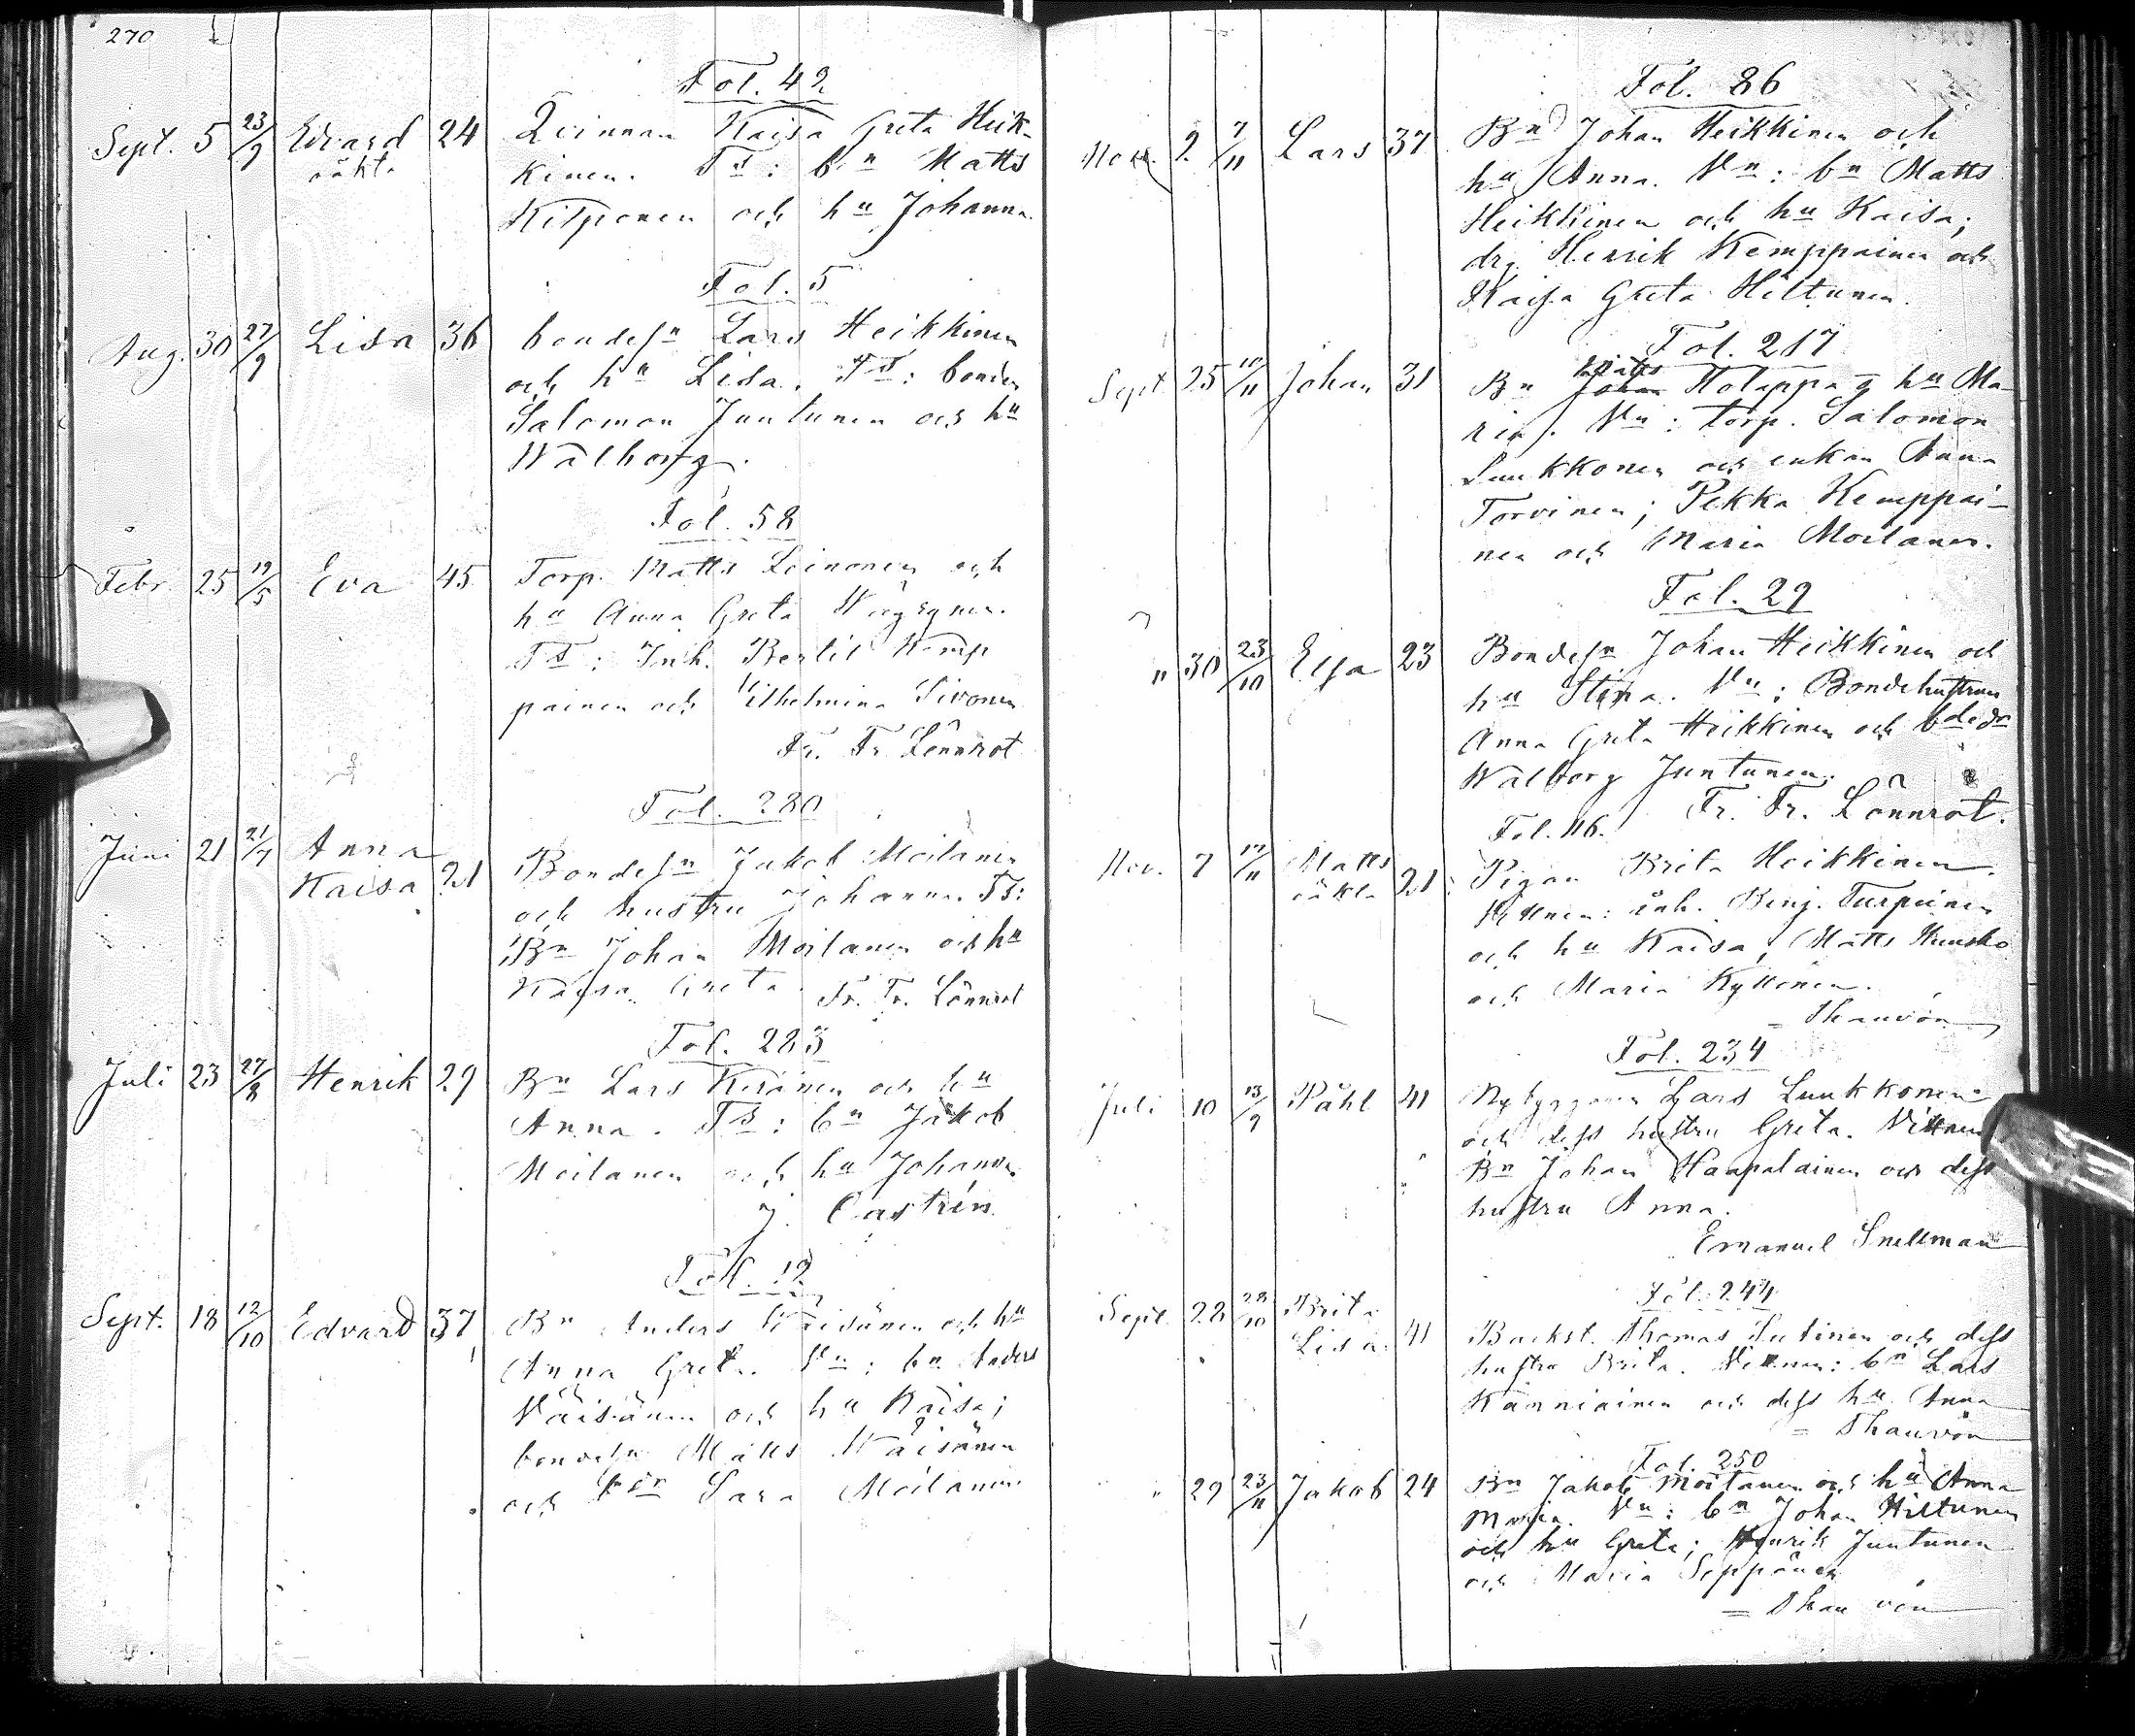 270
Fol. 42
Sept. 5 23/9 Edvard 24 Qvinnan Kaisa Greta Heik-
oäkta kinen. Ts: bn Matts
Kilponen och hu Johanna.
Fol. 5
Aug. 30 27/9 Lisa 36 bondesn Lars Heikkinen
och hu Lisa. Ts: bonden
Salomon Juntunen och hu
Walborg.
Fol. 58
Febr. 25 19/5 Eva 45 Torp. Matts Leinonen och
hu Anna Greta
Ts: Inh. Bertil Kemp
painen och Vilhelmina Sivonen
Fr. Fr. Lönnrot
Fol. 280
Juni 21 21/7 Anna
Kaisa 21 Bondesn Jakob Moilanen
och hustru Johanna. Ts:
Bn Johan Moilanen och hu
Kaisa Greta. Fr. Fr. Lönnrot
Fol. 283
Juli 23 27/8 Henrik 29 Bn Lars Keränen och hu
Anna. Ts: bn Jakob
Moilanen och hu Johanna
J. Castrén
Fol. 12
Sept. 18 12/10 Edvard 37 Bn Anders Väisänen och hu
Anna Greta. Vn: bn Anders
Väisänen och hu Kaisa;
bondesn Matts Väisänen
och Sara Moilanen
Fol. 86
Nov. 2 7/11 Lars 37 Bn Johan Heikkinen och
hu Anna. Vn: bn Matts
Heikkinen och hu Kaisa;
drg. Henrik Kemppainen och
Kaisa Greta Hiltunen.
Fol. 217
Matts
Sept 25 10/11 Johan 31 Bn Johan Holappa & hu Ma-
ria. Vn: torp. Salomon
Luukkonen och enkan Anna
Torvinen; Pekka Kemppai-
nen och Maria Moilanen.
Fol. 29
" 30 23/10 Elsa 23 Bondesn Johan Heikkinen och
hu Stina. Vn: Bondehustrun
Anna Greta Heikkinen och
Walborg Juntunen.
Fr. Fr. Lönnrot.
Fol. 116.
Nov. 7 17/11 Matts 21 Pigan Brita Heikkinen.
oäkta Vittnen: inh. Benj. Turpeinen
och hu Kaisa, Matts
och Maria Kyllönen.
= Thauvón
Fol. 234
Juli 10 13/9 Påhl 41 Nybyggaren Lars Luukkonen
och dess hustru Greta. Vittnen
Bn Johan Haapalainen och dess
hustru Anna.
Emanuel Snellman
Fol. 244
Sept. 22 22/10 Brita
Lisa 41 Backst. Thomas Lutinen och dess
hustru Brita. Vittnen: bn Lars
Känniäinen och dess hu Anna
= Thauvón
Fol. 250
" 29 23/11 Jakob 24 Bn Jakob Moilanen och hu Anna
Maria. Vn: bn Johan Hiltunen
och hu Greta; Henrik Juntunen
och Maria Seppänen
= Thauvón